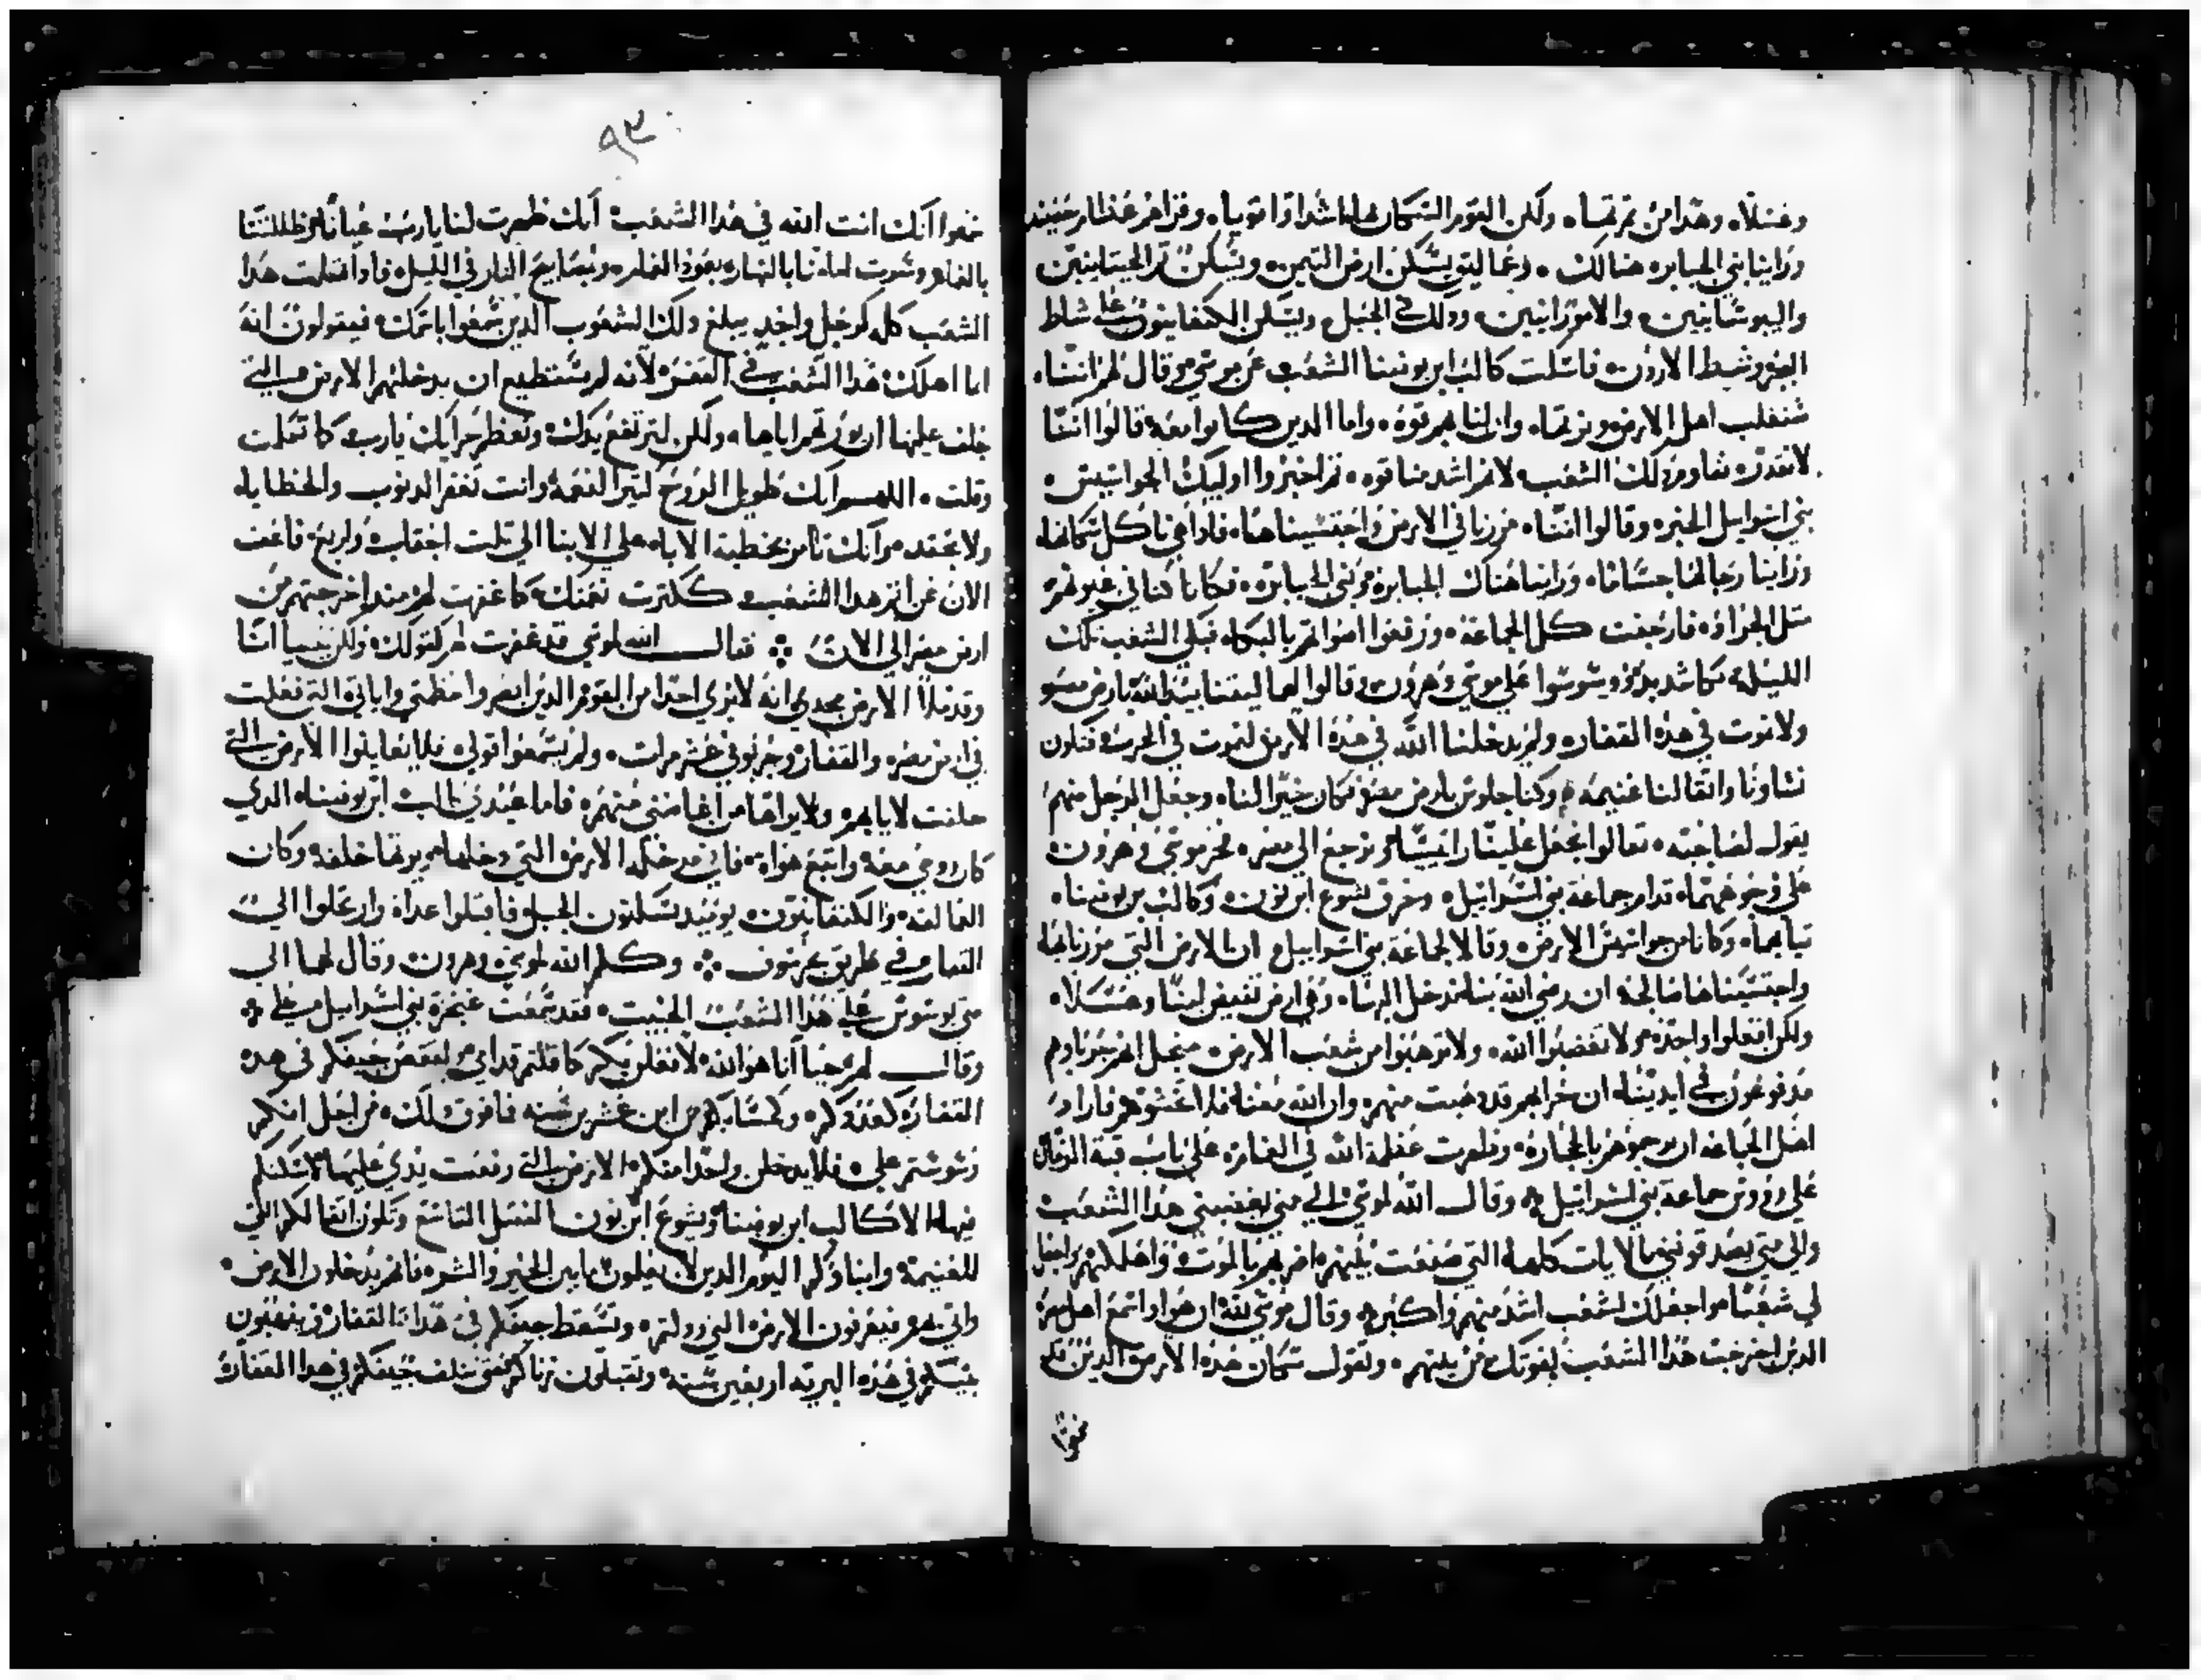 وعسلاً. وهدا من تمرتها. ولكن القوم السكان بها اشدا واقويا. وقراهم
وراينا بني الجبابره هنالك. وعماليق يسكن ارض التيمن. ويسكن تم الحيتانيين
واليبوسانيين. والامورانيين. ودلك في الجبل. ويسكن الكنعانيون على شاط
البحر وشط الاردن. فاسكت كالب ابن يوفينا الشعب عن موسى. وقال لهم اننا
سنغلب اهل الارض ونرتها. وان لنا بهم قوه. واما الدين كانوا معه قالوا اننا
لا نقدر دلك الشعب. لانهم اشد منا قوه. تم اخبروا اوليك الجواسيس.
بني اسراييل الخبر. وقالوا اننا. مررنا في الارض واجتسسناها. فادا هي تاكل سكانها.
وراينا رجالها جسامًا. وراينا هناك الجبابرة. بني الجبابرة. فكاننا كنا في عيونهم
متل الجراد. فارتجفت كل الجماعة. ورفعوا اصواتهم بالبكا. فبكي الشعب تلك
الليلة بكا شديد. ووسوسوا على موسى وهرون. وقالوا لهما ليتنا بيد الله بارض مصر
ولا نموت في هده القفار. ولم يدخلنا الله في هده الارض لنموت في الحرب. فتكون
نساونا واتقالنا غنيمه. وكنا جلوس بارض مصر فكان خيرًا لنا. وجعل الرجل منهم
يقول لصاحبه. تعالوا نجعل علينا راييسًا. ونرجع الي مصر. فخر موسي وهرون
على وجوههما. قدام جماعة بني اسراييل. وخرق يشوع ابن نون. وكالب بن يوفينا.
تيابهما. وكانا من جواسيس الارض. وقالا لجماعة بني اسراييل. ان الارض التي مررنا بها
واجتسسناها صالحة. ان رضي الله بنا ندخل اليها. وهي ارض تفيض لبنًا وعسلاً.
ولكن افعلوا واحده. لا تغضبوا الله. ولا ترهبوا من شعب الارض.
مدفوعون في ايدينا. ان قد دهبت منهم. وان الله معنا. فلا تخشوهم. فاراد
اهل الجماعه ان يرجموهم بالحجارة. وظهرت عظمة الله في الغمام. على باب قبة الزمان
علي روس جماعة بني اسراييل. وقال الله لموسى الي متي يغضبني هدا الشعب
والي متى يصدقونني بالايات كلها. التي صنعت بينهم. اضربهم بالموت. واهلكهم. واجعل
لي شعبًا. واجعلك لشعب اشد منهم واكبر. وقال موسى لله ان هوا دا سمع اهل مصر
الدين اخرجت هدا الشعب بقوتك من بينهم. وتقول سكان هده الارض الدين قد
سمعوا
٩٣
سمعوا انك انت الله في هدا الشعب. انك ظهرت لنا يا رب عيانًا. وظللتنا
بالغمام. وسرت امامنا بالنهار. بعمود الغمام. ومصابيح النار في الليل. فادا قتلت هدا
الشعب كله كرجل واحد. يبلغ دلك الشعوب الدين سمعوا باسمك. فيقولون انه
انما اهلك هدا الشعب في القفر. لانه لم يستطيع ان يدخلهم الارض التي
حلف عليها ان يورتهم اياها. ولكن لترتفع يدك. وتعظم يارب كما تكلمت
وقلت. اللهم انك طويل الروح كتير النعمة. وانت تغفر الدنوب والخطايا.
ولا تحقد. وانك تامر بخطية الابا. على الابنا الي تلت احقاب. واربع. فاعف
الان عن اتم هدا الشعب. ككترت نعمتك. كما غفرت لهم مند اخرجتهم من
ارض مصر الي الان. فقال الله لموسي قد غفرت لهم كقولك. ولكن حيا انا
وقد ملا الارض مجدي. انه لا يري احدا من القوم الدين ابصروا عظمتي. واياتي التي فعلت
في ارض مصر. والقفار. وجربوني عشر مرات. ولم يسمعوا قولي. فلا يعاينوا الارض التي
حلفت لابايهم. ولا يراها من اغضبني منهم. فاما عبدي كالب ابن يوفينا. الدي
كان روحي معه. واتبع هواي. فاني مدخله الارض التي دخلها. ويرتها خلفه. وكان
العمالقه. والكنعانيون. يوميد يسكنون الجبل. فاقبلوا غداه وارتحلوا الي
القفار. في طريق بحر سوف. وكلم الله لموسي وهرون. وقال لهما الي
متى يوسوس على هدا الشعب الخبيت. فقد سمعت بني اسراييل على
وقال لهم حيا انا هو الله. لافعلن بكم كما قلتم قدامي. جيفكم في هده
القفاره كعددكم. وكحسابكم من ابن عشرين سنه فما فوق دلك. من اجل انكم
وسوستم علي. فلا يدخلن واحدا منكم الارض التي رفعت يدي عليها لاسكنكم
فيها. الا كالب ابن يوفينا. ويشوع ابن نون. وتكون اتقالكم التي
للغنيمة. وابناوكم اليوم الدين لا يعلمون ما بين الخير والشر. فانهم يدخلون الارض.
واتي بهم. فيعرفون الارض التي رددتم. وتسقط جيفكم في هدا القفار.
بنيكم في هده البريه اربعين سنه. وتقبلون زناكم حتى تتلف جيفكم في هدا القفار